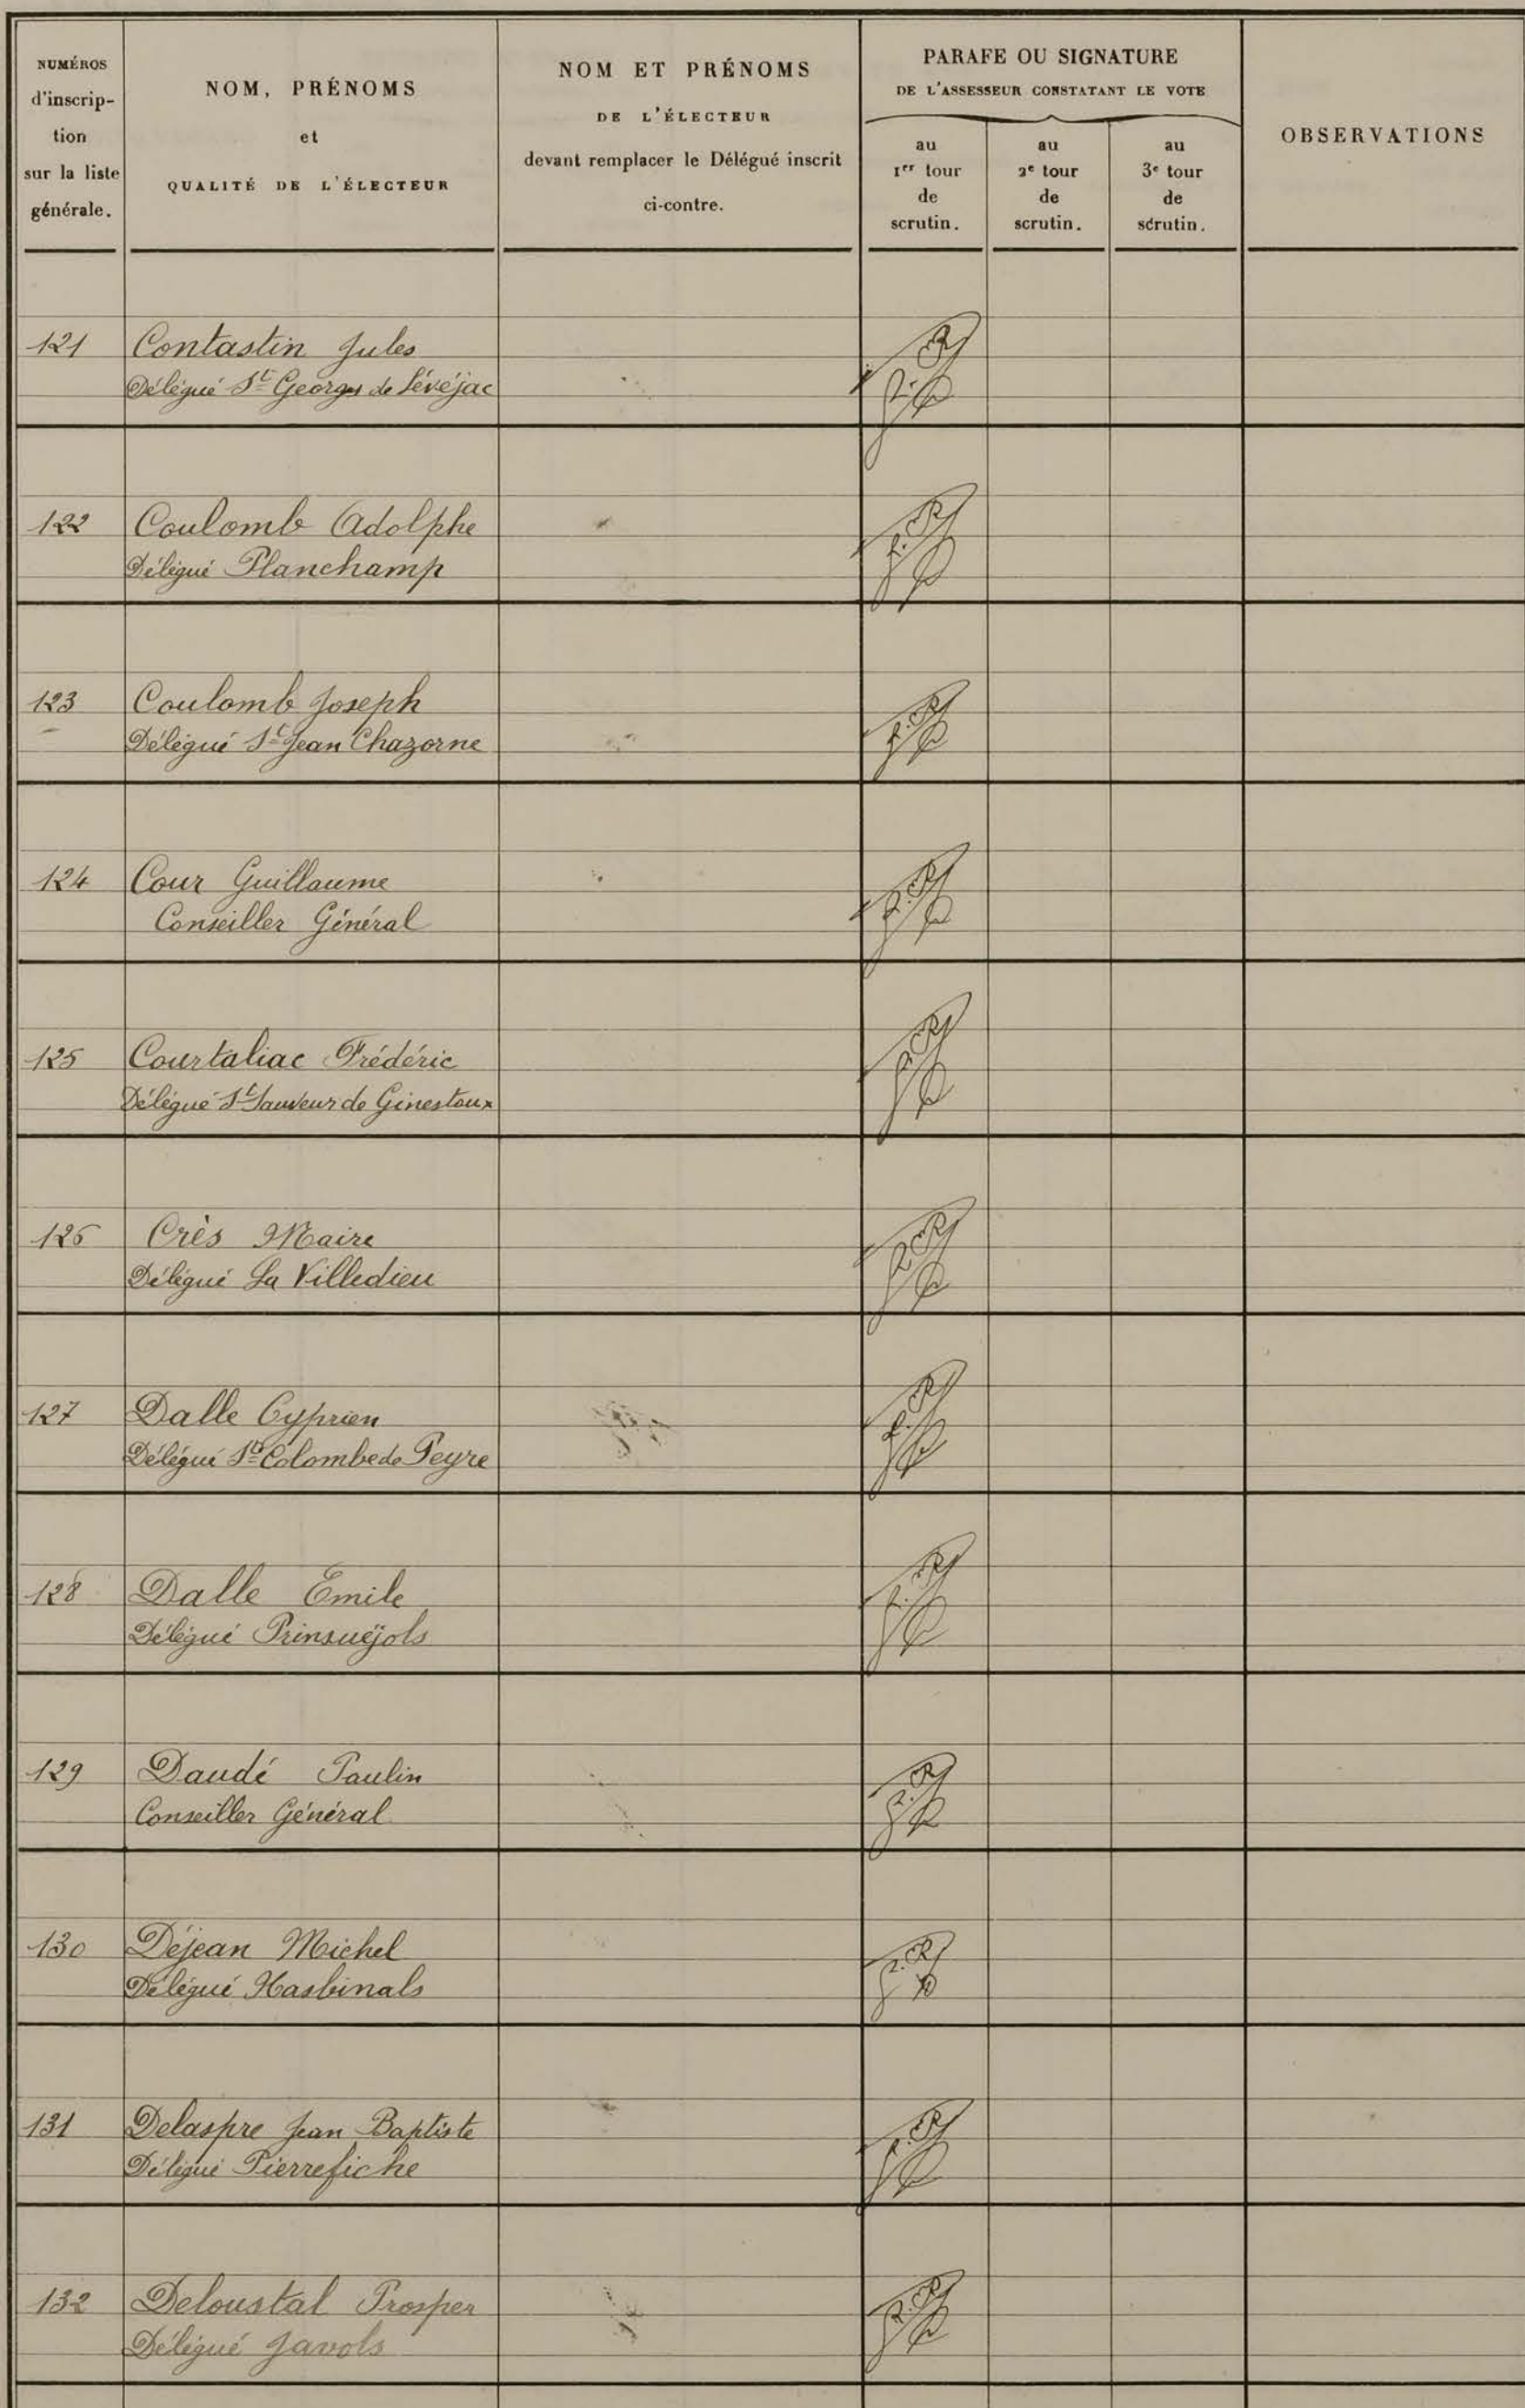 NUMÉROS
d'inscrip-
tion
sur la liste
générale.
NOM, PRÉNOMS
et
QUALITÉ DE L'ÉLECTEUR
NOM ET PRÉNOMS
DE L'ÉLECTEUR
devant remplacer le Délégué inscrit
ci-contre.
PARAFE OU SIGNATURE
DE L'ASSESSEUR CONSTATANT LE VOTE
au
1er tour
de
scrutin.
au
2e tour
de
scrutin.
au
3e tour
de
scrutin.
OBSERVATIONS
121 Contastin Jules
Délégué St Georges de Lévéjac
122 Coulomb Adolphe
Délégué Planchamp
123 Coulomb Joseph
Délégué St Jean Chazorne
124 Cour Guillaume
Conseiller Général
125 Courtaliac Frédéric
Délégué St Sauveur de Ginestoux
126 Crès Maire
Délégué La Villedieu
127 Dalle Cyprien
Délégué Ste Colombe de Peyre
128 Dalle Emile
Délégué Prinsuéjols
129 Daudé Paulin
Conseiller Général
130 Déjean Michel
Délégué Nasbinals
131 Delaspre Jean Baptiste
Délégué Pierrefiche
132 Deloustal Prosper
Délégué Javols